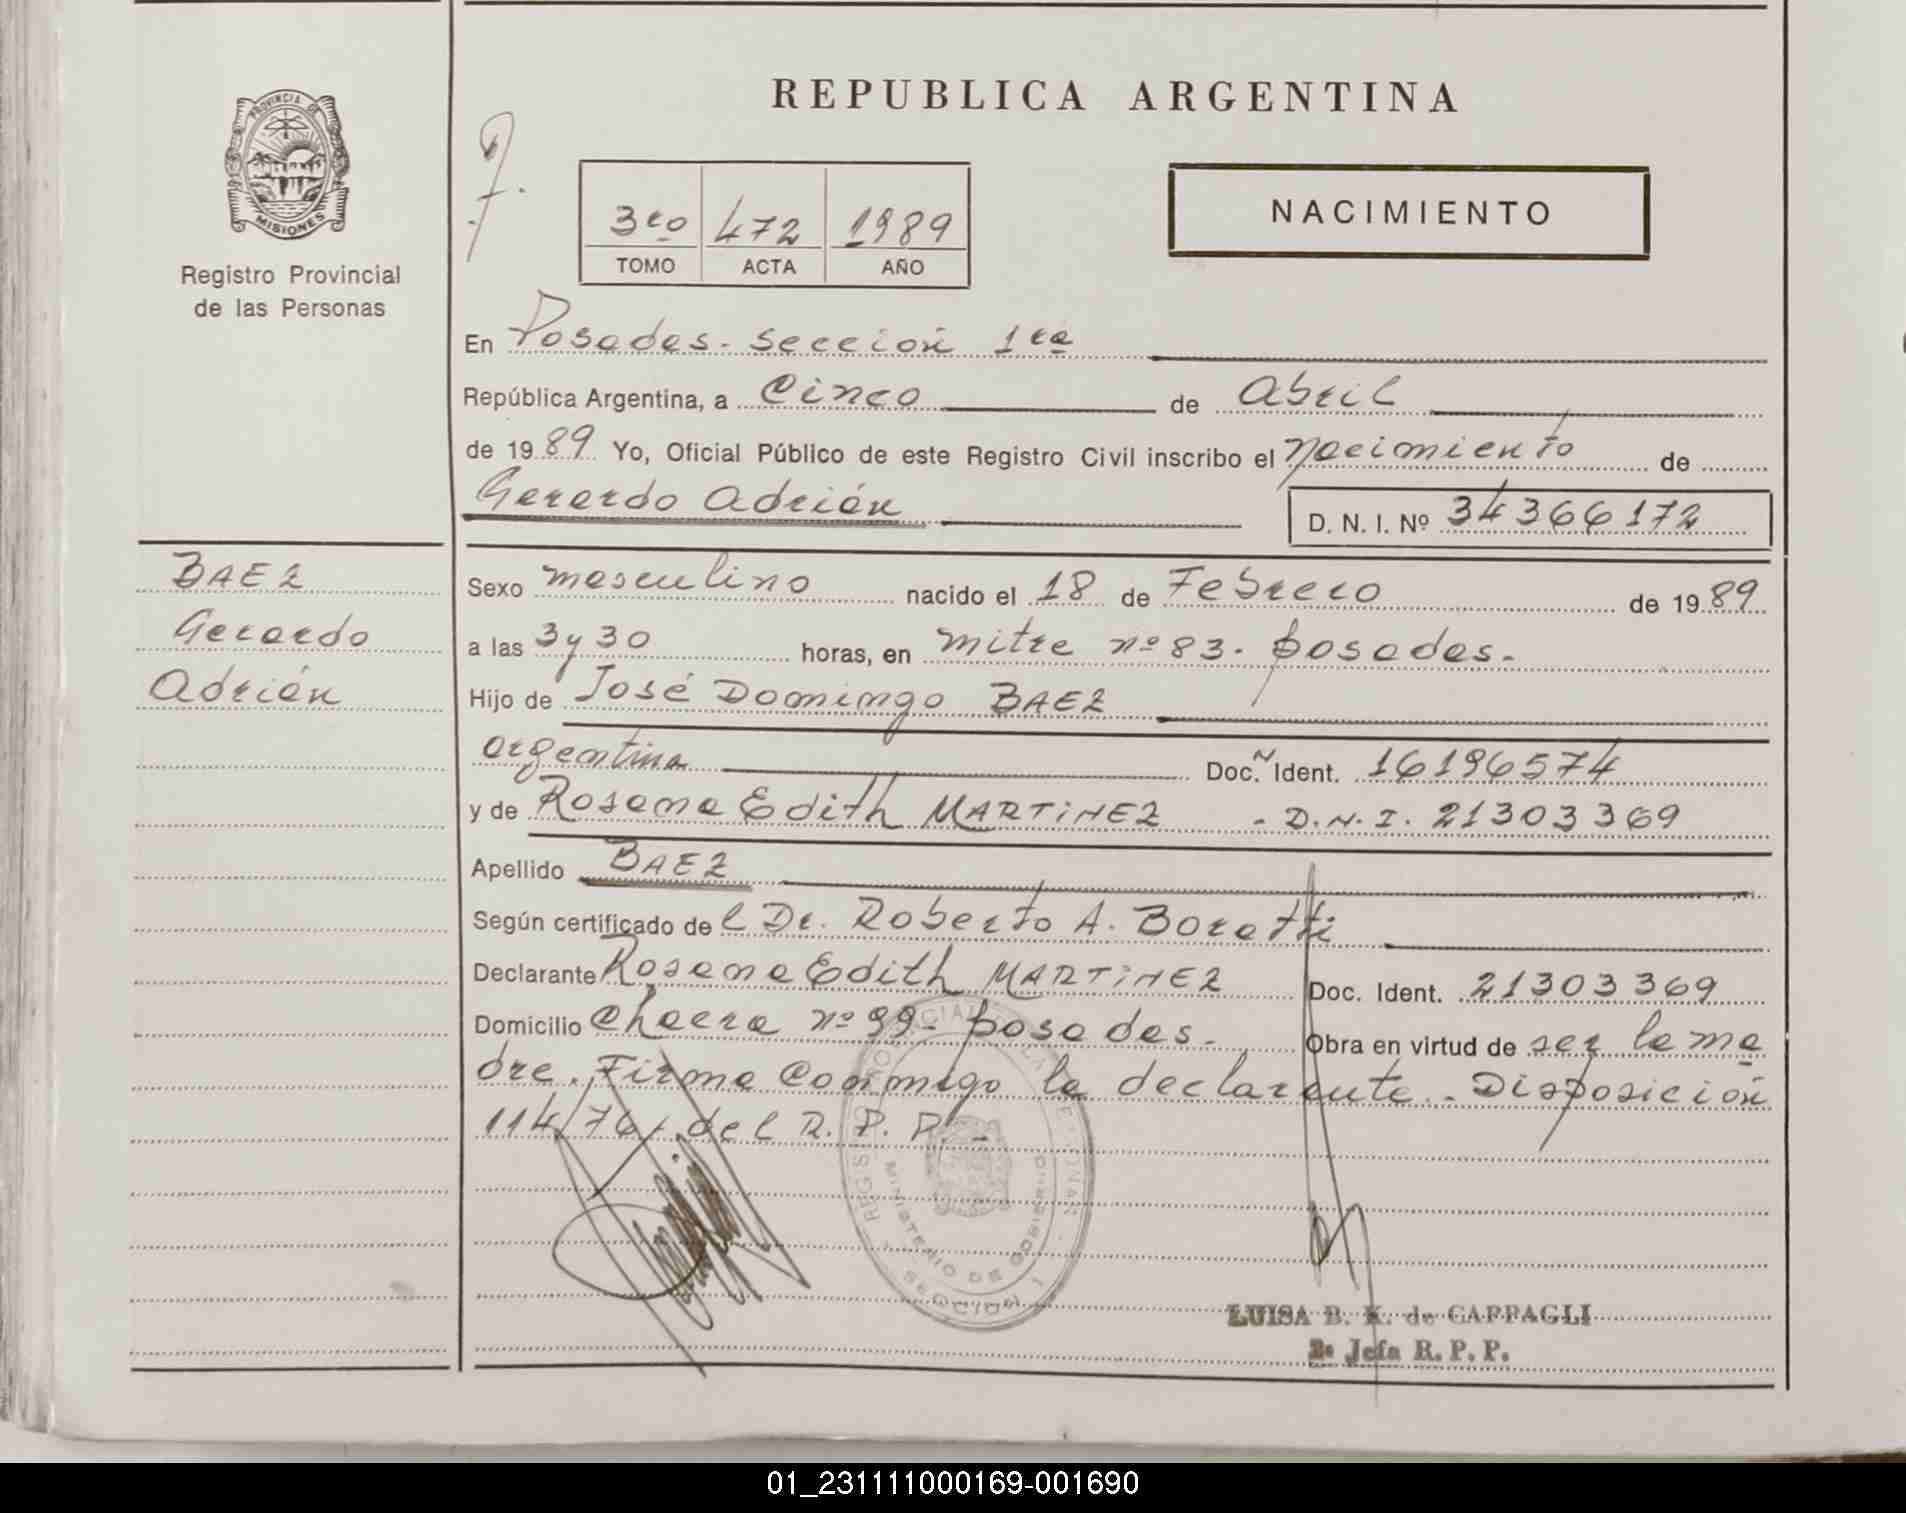 REPUBLICA ARGENTINA
PROVINCIA DE
MISIONES
Registro Provincial
de las Personas
3ro 472 1989
TOMO ACTA AÑO
NACIMIENTO
En Posadas - Sección 1ra
República Argentina, a Cinco de Abril
de 1989 Yo, Oficial Público de este Registro Civil inscribo el nacimiento de
Gerardo Adrián
D. N. I. Nº 34366172
BAEZ
Gerardo
Adrián
Sexo masculino nacido el 18 de Febrero de 1989
a las 3 y 30 horas, en mitre nº 83. posadas.
Hijo de José Domingo BAEZ
argentina Doc. Ident. 16196574
y de Rosana Edith MARTiNEZ - D.N.I. 21303369
Apellido BAEZ
Según certificado del Dr. Roberto A. Boratti
Declarante Rosana Edith MARTiNEZ Doc. Ident. 21303369
Domicilio Chacra nº 99- posadas. Obra en virtud de ser la ma
dre. Firma Conmigo la declarante.- Disposición
114/76, del R. P. P. -
MINISTERIO DE GOBIERNO
SECCION 1
LUISA B. K. de CAPPAGLI
2º Jefa R. P. P.
01_231111000169-001690